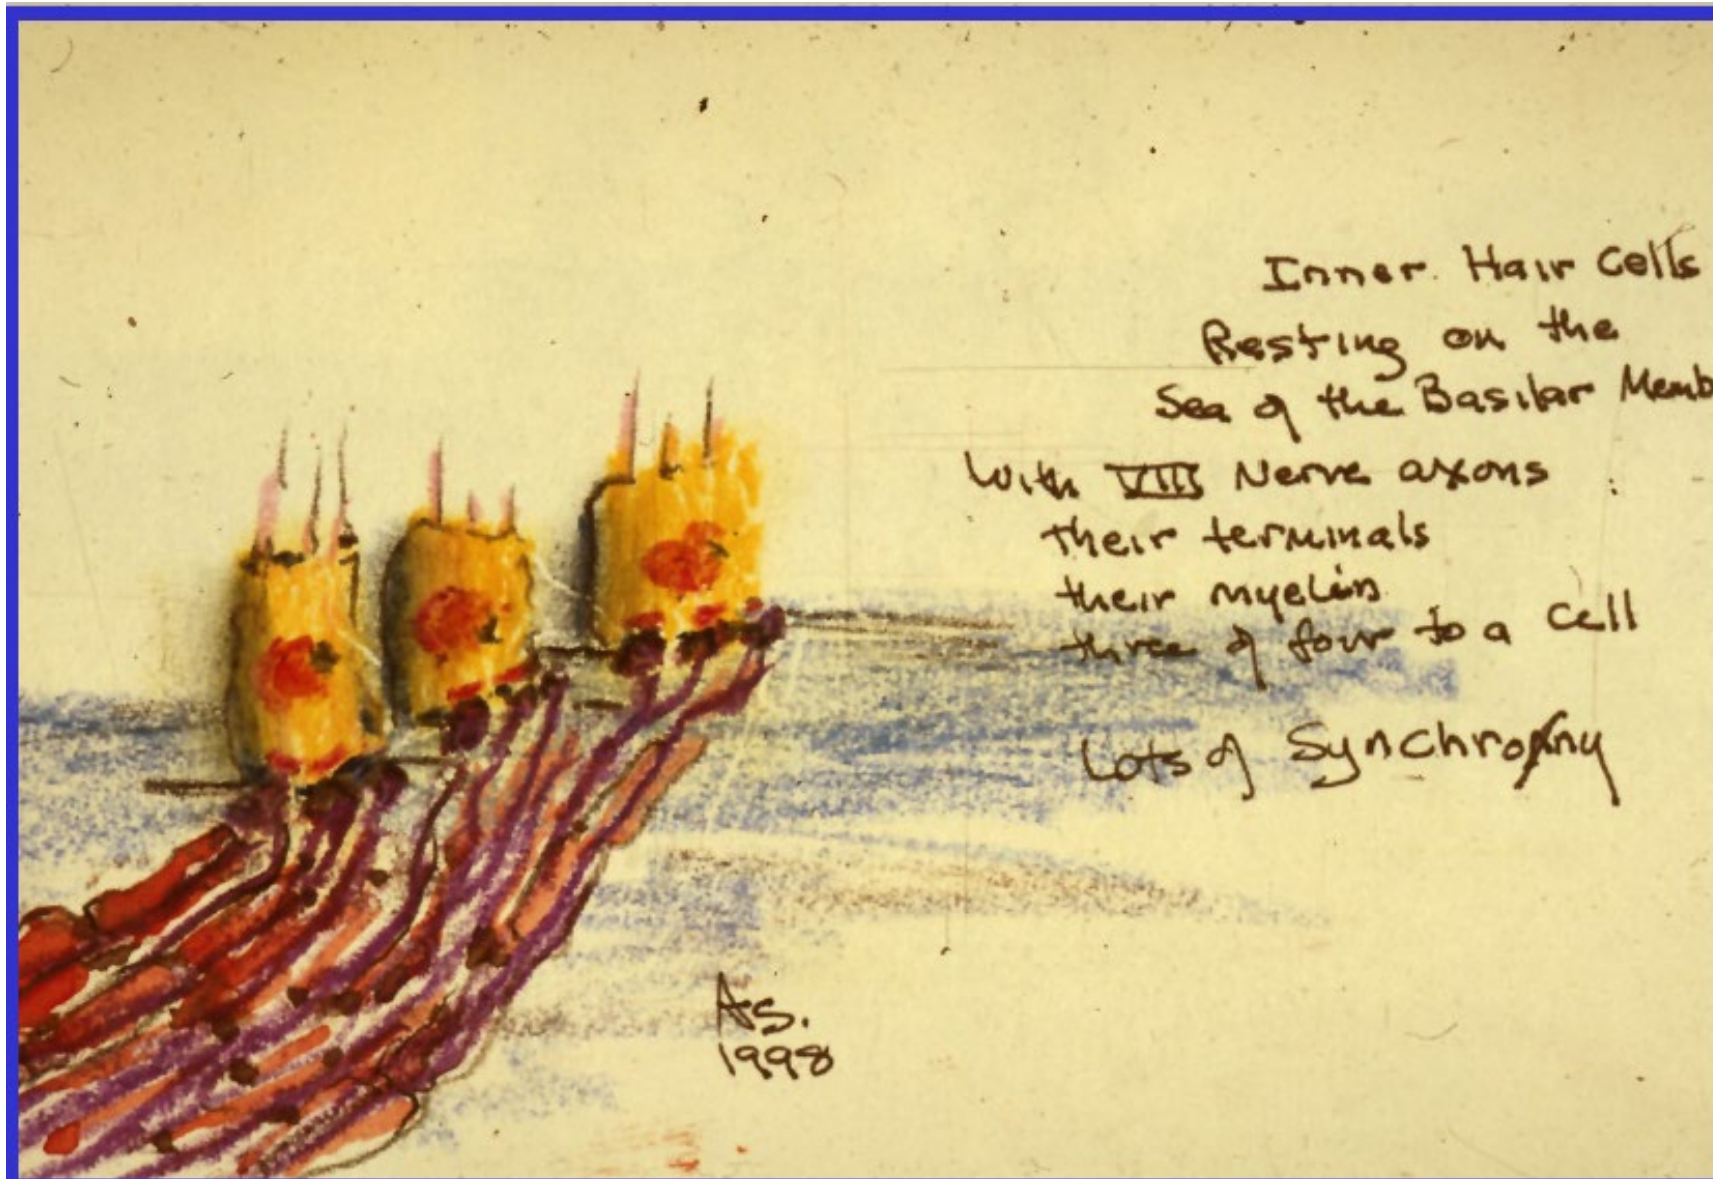 Inner Hair Cells
Resting on the
Sea of the Basilar Memb
With VIII Nerve axons
their terminals
their myelin
three of four to a Cell
Lots of Synchrony
AS.
1998